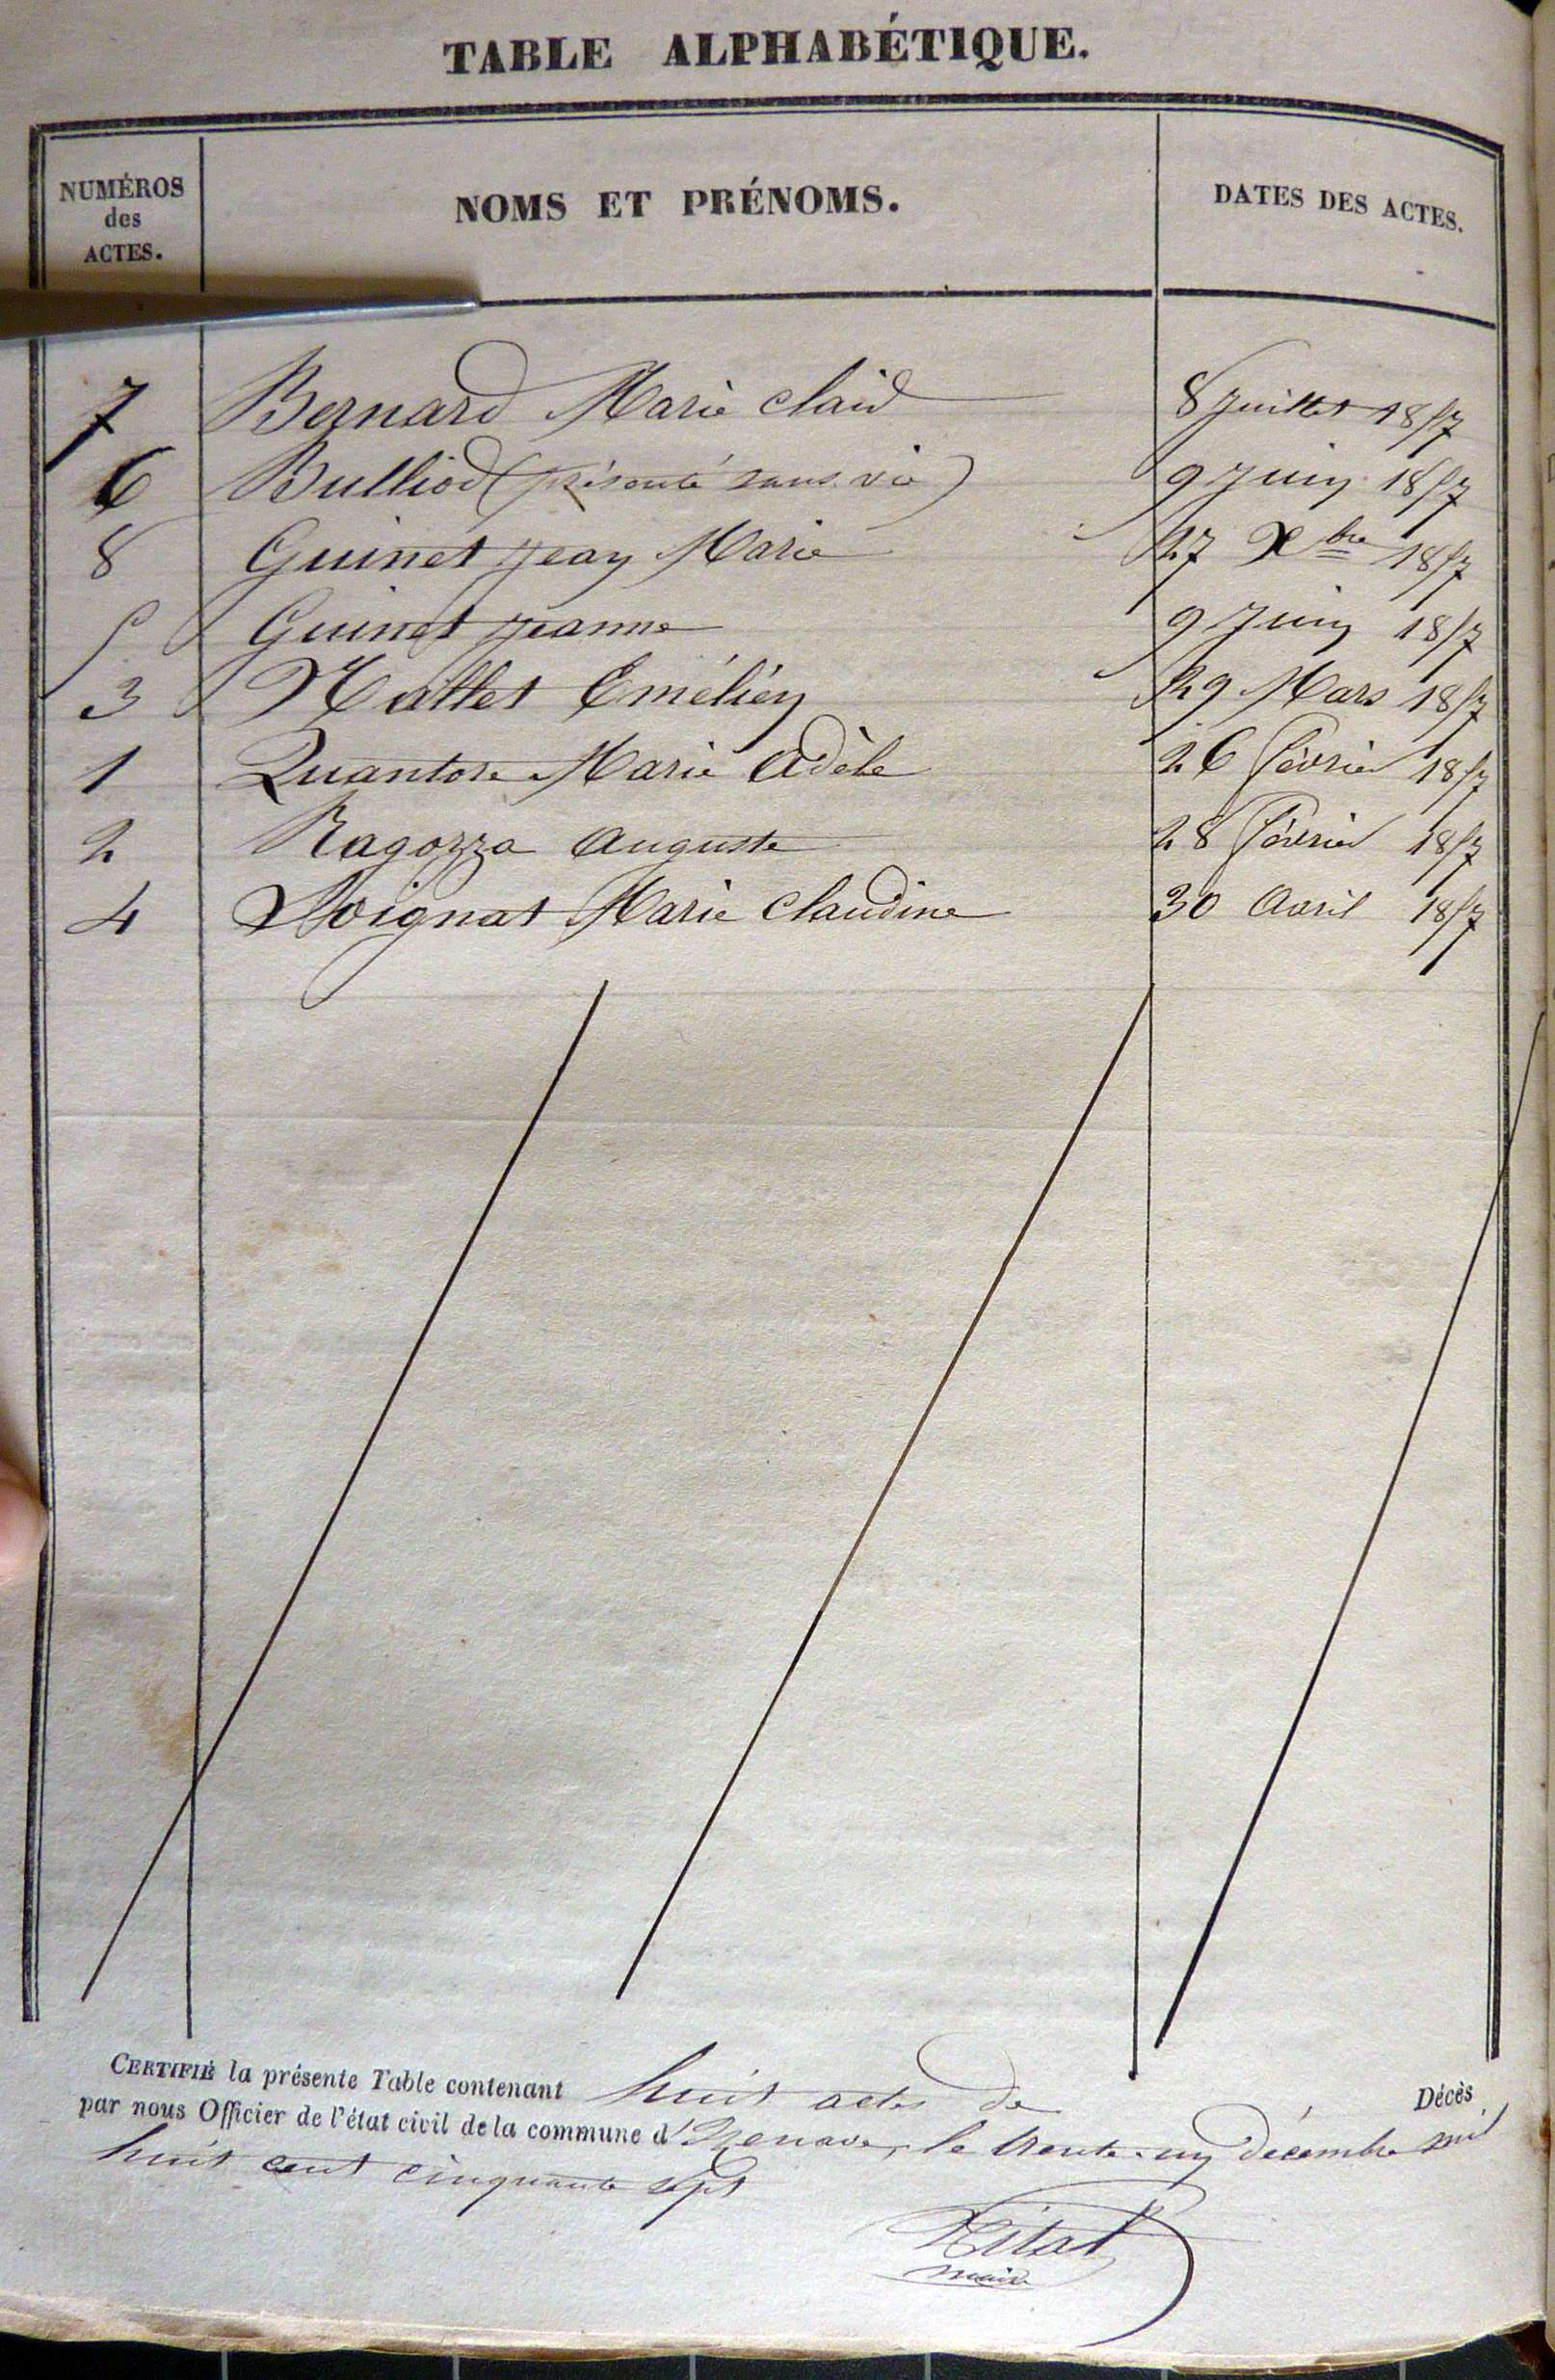 TABLE ALPHABÉTIQUE.
NUMÉROS des ACTES. NOMS ET PRÉNOMS. DATES DES ACTES.
7 Bernard Marie 8 Juillet 1857
6 Bulliod (présenté sans vie) 9 Juin 1857
8 Guinet Jean Marie 27 Xbre 1857
5 Guinet Jeanne 9 Juin 1857
3 Mallet Emélien 29 Mars 1857
1 Marie Adèle 26 Février 1857
2 Ragozza Auguste 28 Février 1857
4 Marie Claudine 30 Avril 1857
CERTIFIÉ la présente Table contenant huit actes de Décès
par nous Officier de l'état civil de la commune d' Izenave, le trente-un décembre mil
huit cent cinquante sept
maire